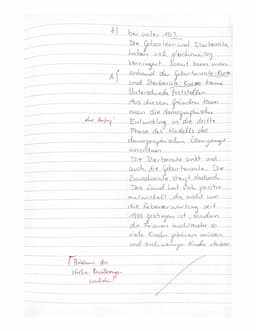 bei unter 10?
Die Geburten- und Sterberate
haben sich gleichmässig
verringert. Somit kann man
anhand der Geburtenrate-Kurve
und Sterberate-Kurve keine
Unterschiede feststellen.
Aus diesem Grunde kann
man die demographische
Entwicklung in die dritte
Phase des Modells des
demographischen Übergangs
einordnen.
Die Sterberate sinkt und
auch die Geburtenrate. Die
steigt dadurch
Das Land hat sich positiv
entwickelt, da nicht nur
die Lebenserwartung seit
gestiegen ist, sondern
die Frauen nicht mehr so
viele Kinder gebären müssen
und auch weniger Kinder sterben.
Probleme des